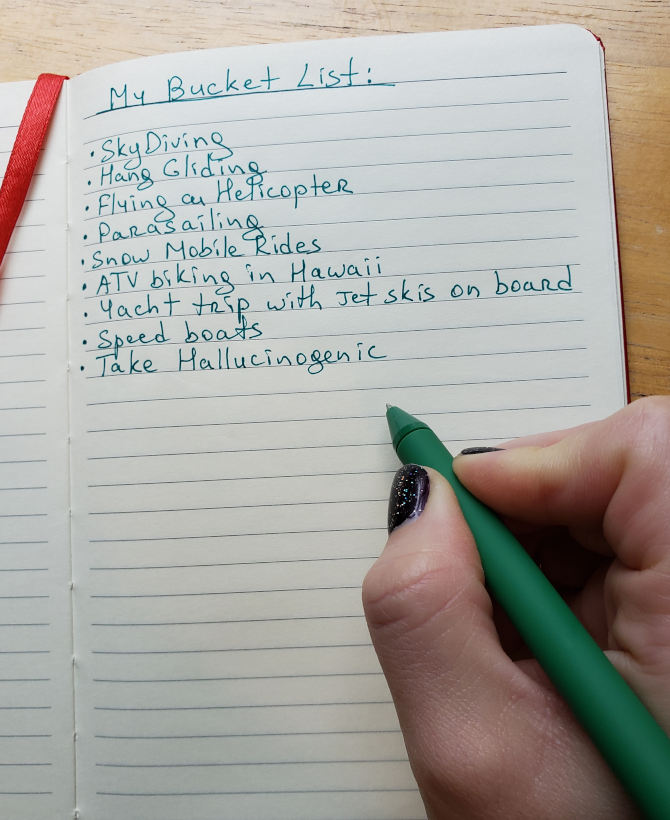 My Bucket List:
• SkyDiving
• Hang Gliding
• Flying on Helicopter
• Parasailing
• Snow Mobile Rides
• ATV biking in Hawaii
• Yacht trip with Jet skis on board
• Speed boats
• Take Hallucinogenic